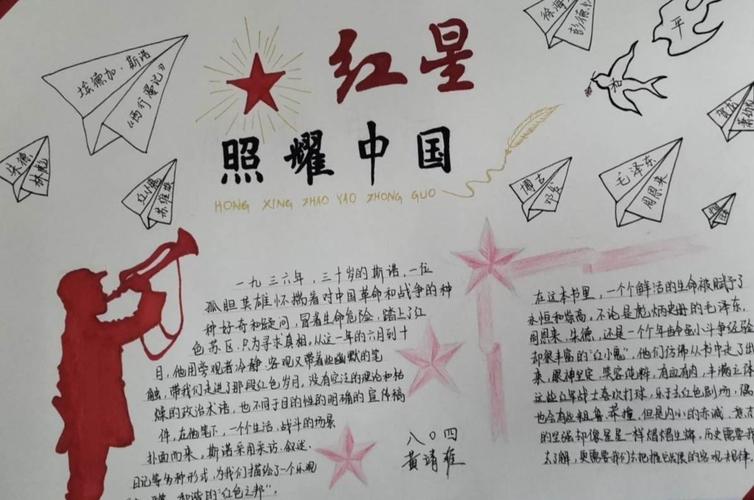 红星
照耀中国
HONG XING ZHAO YAO ZHONG GUO
埃德加·斯诺
《西行漫记》
朱德
林彪
徐海
彭德
平
和
博古
邓发
毛泽东
周恩来
一九三六年，三十岁的斯诺，一位
孤胆英雄怀揣着对中国革命和战争的种
种好奇和疑问，冒着生命危险，踏上了红
色苏区，只为寻求真相。从这一年的六月到十
月，他用旁观者冷静、客观又带着些幽默的笔
触，带我们走进了那段红色岁月，没有空泛的理论和枯
燥的政治术语，也不同于目的性的明确的宣传稿
件，在他笔下，一个个生活、战斗的场景
扑面而来，斯诺采用采访、叙述、
日记等多种形式，为我们描绘了一个乐观
和诚的"红色之邦"。
八〇四
黄靖雅
在这本书里，一个个鲜活的生命被赋予了
永恒和崇高，不论是彪炳史册的毛泽东、
周恩来、朱德，还是一个个年幼
却很丰富的"红小鬼"，他们仿佛从书中走了出
来，眼神坚定，笑容纯粹，有血有肉，丰满立体
这些少年战士喜欢打球，乐于去红色剧场，偶
也会有些粗鲁、莽撞，但是内心的赤诚
的坚强却像星星一样熠熠生辉，历史需要我
去了解，更需要我们去把握